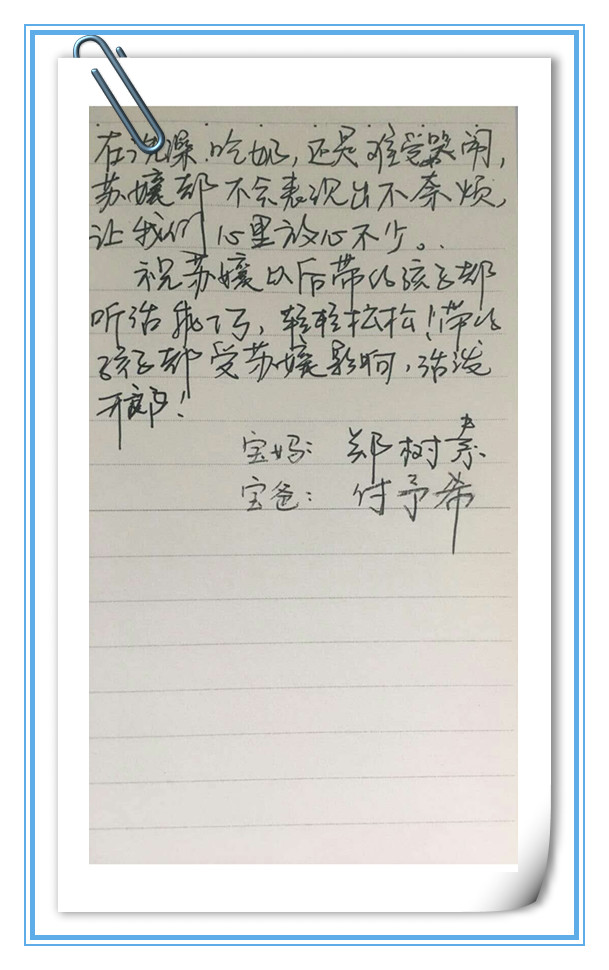 在洗澡、吃奶，还是难受哭闹，
苏嬢都不会表现出不奈烦，
让我们心里放心不少。
祝苏嬢以后带的孩子都
听话我巧，轻轻松松！带的
孩子都受苏嬢影响，活泼
开郎！
宝妈：郑树素
宝爸：付予希